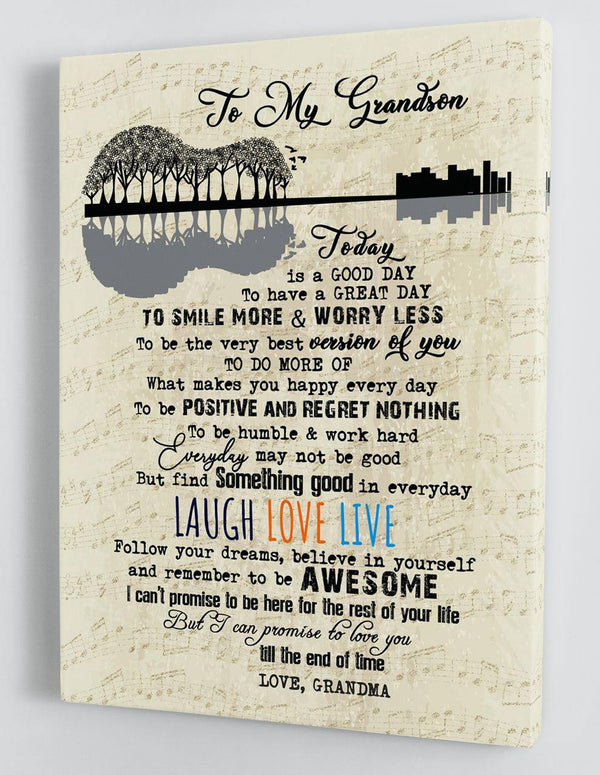 To My Grandson
Today
is a GOOD DAY
To have a GREAT DAY
TO SMILE MORE & WORRY LESS
To be the very best version of you
TO DO MORE OF
What makes you happy every day
To be POSITIVE AND REGRET NOTHING
To be humble & work hard
Everyday may not be good
But find Something good in everyday
LAUGH LOVE LIVE
Follow your dreams, believe in yourself
and remember to be AWESOME
I can't promise to be here for the rest of your life
But I can promise to love you
till the end of time
LOVE, GRANDMA